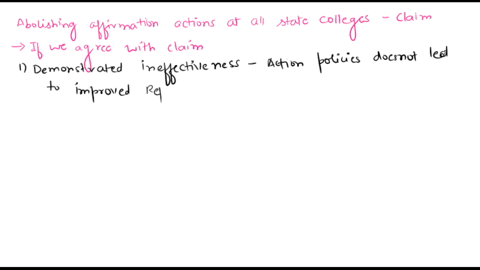 Abolishing affirmation actions at all state colleges - Claim
→ If we agree with claim
1) Demonstrated ineffectiveness - Action policies doesnot led
to improved Rep